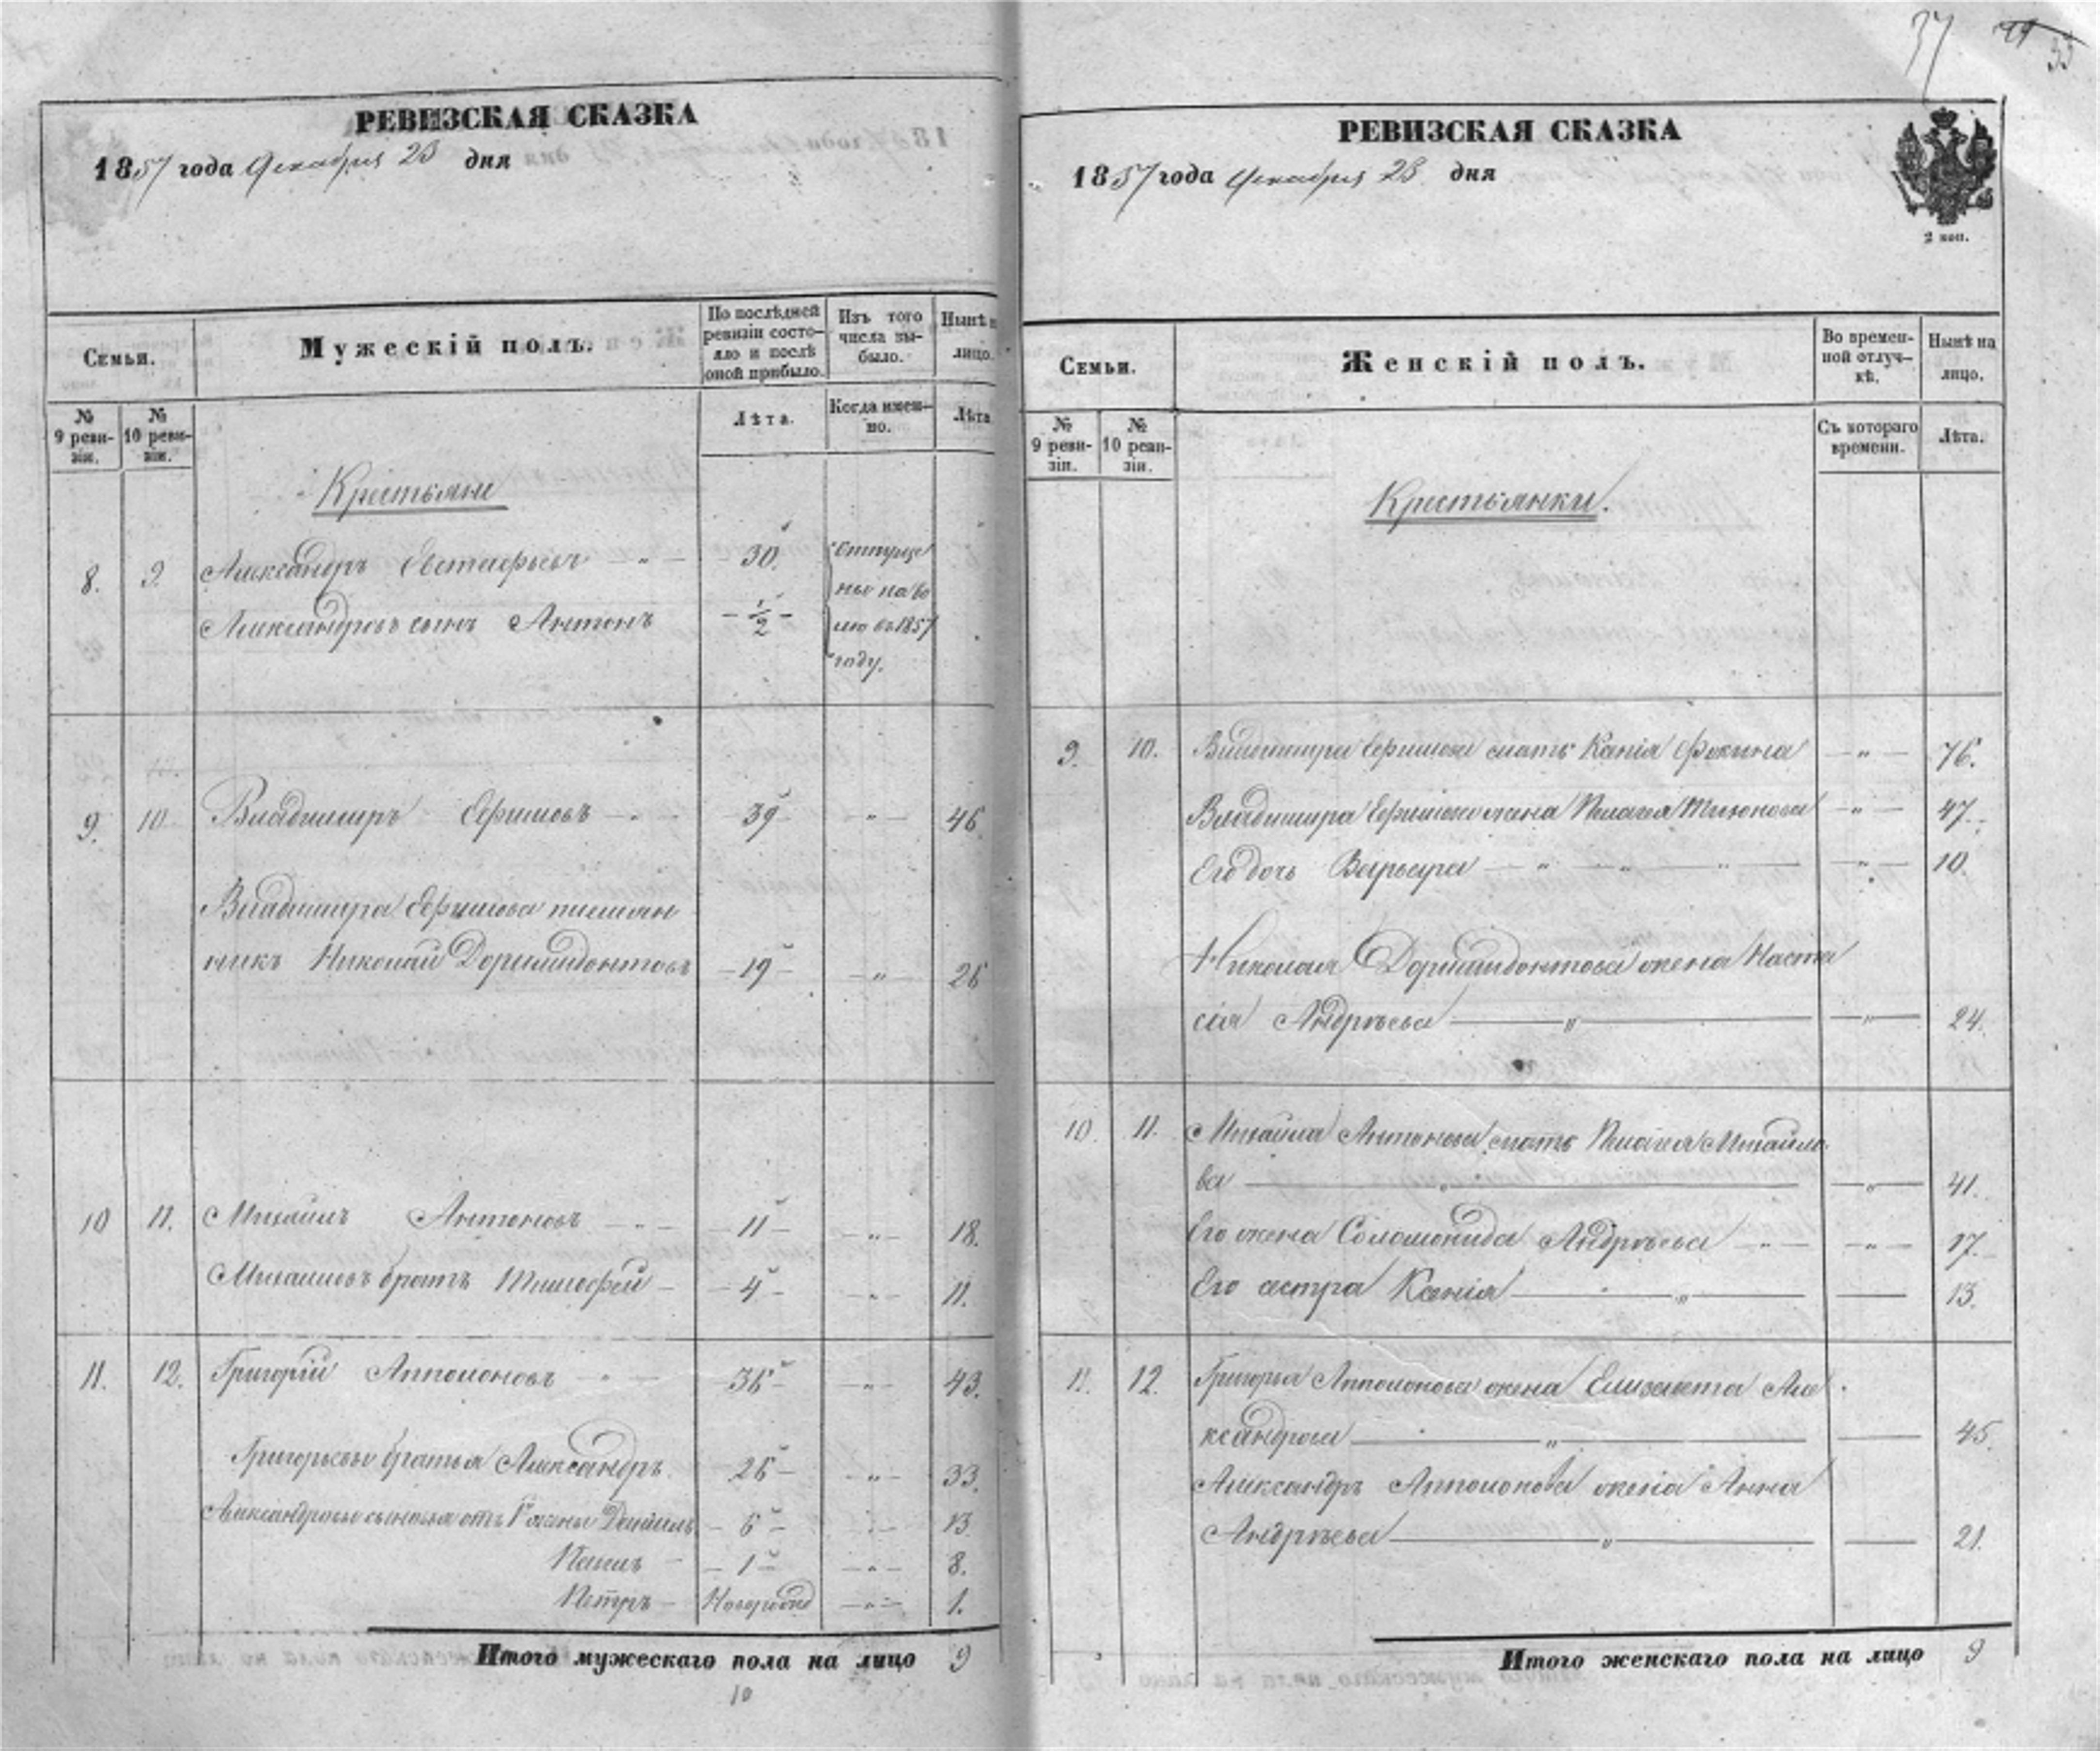 37 33
РЕВИЗСКАЯ СКАЗКА
1857 года Декабря 23 дня
Семьи.
Мужескій полъ.
По послѣдней
ревизіи состо-
яло и послѣ
оной прибыло.
Изъ того
числа вы-
было.
Нынѣ н
лицо.
№
9 реви-
зіи.
№
10 реви-
зіи.
Лѣта.
Когда имен-
но.
Лѣта
Крестьяне
8. 9. Александръ Евстафьевъ 30. Отпуще
ны на во
Александровъ сынъ Антонъ ½ лю въ 1857
году.
9. 10 Владимиръ Ефимовъ 39 46.
Владимира Ефимова племян
никъ Николай Доримидонтовъ 19 26
10 11. Михаилъ Антоновъ 11 18.
Михаиловъ братъ Тимофей 4 11.
11. 12. Григорій Апполоновъ 36 43.
Григорьевы братья Александръ 26 33.
Александровы сыновья отъ 1й жены Даниилъ 6 13
Павелъ 1 8.
Петръ Новорожд 1.
Итого мужескаго пола на лицо 9
10
РЕВИЗСКАЯ СКАЗКА
1857 года Декабря 23 дня
2 коп.
Семьи.
Женскій полъ.
Во времен-
ной отлуч-
кѣ.
Нынѣ на
лицо.
№
9 реви-
зіи.
№
10 реви-
зіи.
Съ котораго
времени.
Лѣта.
Крестьянки.
9. 10. Владимира Ефимова мать Фокина 76.
Владимира Ефимова жена Пелагея Тихонова 47.
Его дочь Варвара 10.
Николая Доримидонтова жена Наста
сія Андрѣева 24.
10. 11. Михаила Антонова мать Пелагея Михайло
ва 41.
Его жена Соломонида Андрѣева 17.
Его сестра Ксенія 13.
11. 12. Григорья Апполонова жена Елизавета Але
ксандрова 45.
Александръ Апполонова жена Анна
Андрѣева 21.
Итого женскаго пола на лицо 9